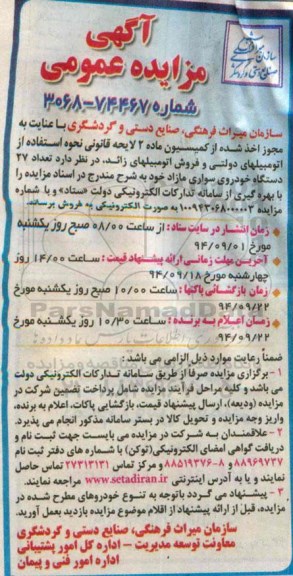 آگهی
مزایده عمومی
شماره ۷۴۴۶۷-۳۰۶۸
سازمان میراث فرهنگی، صنایع دستی و گردشگری با عنایت به
مجوز اخذ شده از کمیسیون ماده ۲ لایحه قانونی نحوه استفاده از
اتومبیلهای دولتی و فروش اتومبیلهای زائد، در نظر دارد تعداد ۲۷
دستگاه خودروی سواری مازاد خود به شرح مندرج در اسناد مزایده را
با بهره گیری از سامانه تدارکات الکترونیکی دولت «ستاد» و با شماره
مزایده ۱۰۰۹۴۳۰۶۸۰۰۰۰۰۳ به صورت الکترونیکی به فروش برساند.
زمان انتشار در سایت ستاد: از ساعت ۰۸/۰۰ صبح روز یکشنبه
مورخ ۹۴/۰۹/۰۱
آخرین مهلت زمانی ارائه پیشنهاد قیمت: ساعت ۱۴/۰۰ روز
چهارشنبه مورخ ۹۴/۰۹/۱۸
زمان بازگشائی پاکتها: ساعت ۱۰/۰۰ صبح روز یکشنبه مورخ
۹۴/۰۹/۲۲
زمان اعلام به برنده: ساعت ۱۰/۳۰ روز یکشنبه مورخ
۹۴/۰۹/۲۲
ضمناً رعایت موارد ذیل الزامی می باشد:
۱- برگزاری مزایده صرفاً از طریق سامانه تدارکات الکترونیکی دولت
می باشد و کلیه مراحل فرآیند مزایده شامل پرداخت تضمین شرکت در
مزایده (ودیعه)، ارسال پیشنهاد قیمت، بازگشایی پاکات، اعلام به برنده،
واریز وجه مزایده و تحویل کالا در بستر سامانه مذکور انجام می پذیرد.
۲- علاقمندان به شرکت در مزایده می بایست جهت ثبت نام و
دریافت گواهی امضای الکترونیکی (توکن) با شماره های دفتر ثبت نام
۸۸۹۶۹۷۳۷ و ۸-۸۸۵۱۹۳۷۶ و مرکز تماس ۲۷۳۱۳۱۳۱ تماس حاصل
نمایند و یا به آدرس اینترنتی www.setadiran.ir مراجعه نمایند.
۳- پیشنهاد می گردد باتوجه به تنوع خودروهای مطرح شده در
مزایده، قبل از ارائه پیشنهاد از اقلام موضوع مزایده بازدید بعمل آورید.
سازمان میراث فرهنگی، صنایع دستی و گردشگری
معاونت توسعه مدیریت – اداره کل امور پشتیبانی
اداره امور فنی و پیمان